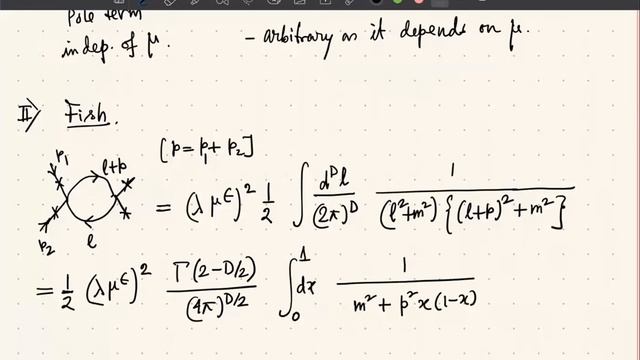 Pole term
indep. of μ. - arbitrary as it depends on μ.
II) Fish.
[p = p₁ + p₂]
p₁ l+p
= (λ μ^ϵ)² 1/2 ∫ d^D l/(2π)^D 1/((l²+m²) {(l+p)²+m²})
p₂ l
= 1/2 (λ μ^ϵ)² Γ(2-D/2)/(4π)^{D/2} ∫₀¹ dx 1/(m² + p² x(1-x))